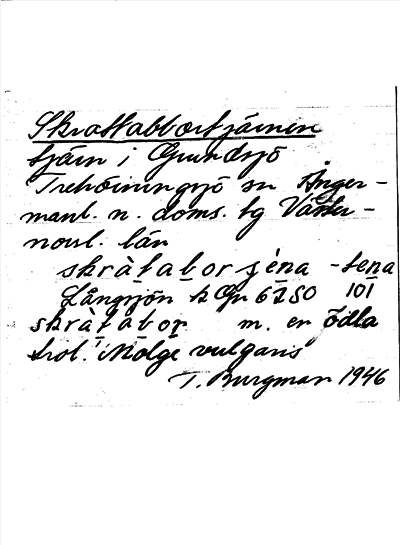 Skrattabbortjärnen
tjärn i Grundsjö
Trehörningsjö sn Ånger-
manl. n. doms. tg Väster-
norrl. län
skràtabor sjéna -tena
Långsjön k Gr 6250 101
skràtabor m. en ödla
trol. Molge vulgaris
T. Burgman 1946